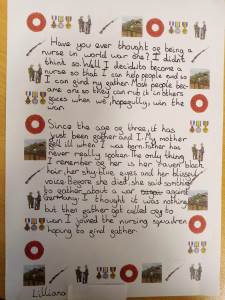 Have you ever thought of being a
nurse in world war one? I didn't
think so. Well I decids to become a
nurse so that I can help people and so
I can find my father. Most people bec-
ame one so they can rub it in others
faces when we, hopefully, win the
war.
Since the age of three, it has
just been father and I. My mother
fell ill when I was born. Father has
never really spoken. The only thing
I remember of her is her raven black
hair, her sky blue eyes and her blessed
voice. Before she died, she said somthing
to father about a war against
Germany. I thought it was nothing
but then father got called off to
war. I joined the nursing squadren
hoping to find father.
Lilliana